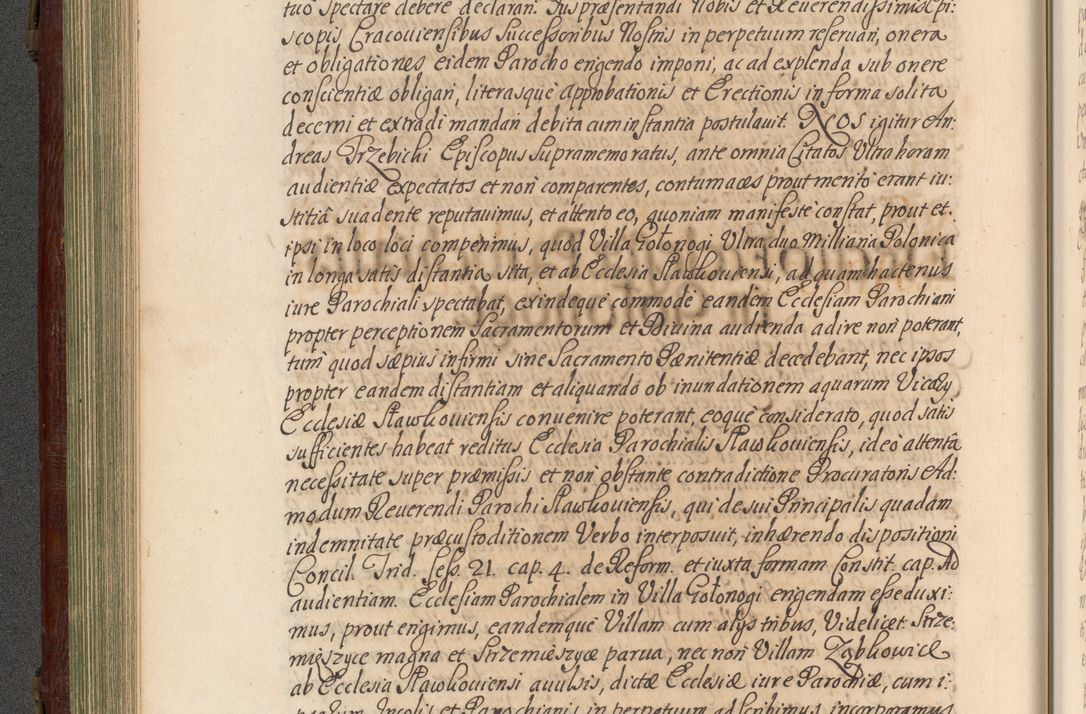 tuo spectare debere declarari. Jus præsentandi Nobis et Reverendissimis Epi:
scopis Cracoviensibus Successoribus Nostris in perpetuum reservari, onera
et obligationes eidem Parocho erigendo imponi, ac ad explenda sub onere
conscientiæ obligari, literasque Approbationis et Erectionis in forma solita
decerni et extradi mandari debita cum instantia postulavit. NOS igitur An:
dreas Trzebicki Episcopus supramemoratus, ante omnia Citatos Ultra horam
audientiæ expectatos et non comparentes, contumaces prout merito erant iu:
stitiâ suadente reputavimus, et attento eo, quoniam manifeste constat, prout et
ipsi in loco loci comperimus, quod Villa Gołonogi Ultra duo Milliaria Polonica
in longa satis distantia sita, et ab Ecclesia Sławkoviensi, ad quam hactenus
iure Parochiali spectabat, exindeque commode eandem Ecclesiam Parochiani
propter perceptionem Sacramentorum et Divina audienda adire non poterant,
tum quod sæpius infirmi sine Sacramento Pænitentiæ decedebant, nec ipsos
propter eandem distantiam et aliquando ob inundationem aquarum Vicarÿ
Ecclesiæ Sławkoviensis convenire poterant, eoque considerato, quod satis
sufficientes habeat reditus Ecclesia Parochialis Sławkoviensis, ideo attentâ
necessitate super præmissis et non obstante contradictione Procuratoris Ad:
modum Reverendi Parochi Sławkoviensis, qui de sui Principalis quadam
indemnitate præcustoditionem Verbo interposuit, inhærendo dispositioni
Concil. Trid. Sess. 21. cap. 4. de Reform. et iuxta formam Constit. cap. Ad
audientiam. Ecclesiam Parochialem in Villa Gołonogi erigendam esse duxi:
mus, prout erigimus, eandemque Villam cum alÿs tribus, Videlicet Strze:
mięszyce magna et Strzemieszyce parua, nec non Villam Ząbkowice
ab Ecclesia Sławkoviensi avulsis, dictæ Ecclesiæ iure Parochiæ, cum i:
psarum Incolis et Parochianis in perpetuum adscribimus, incorporamus